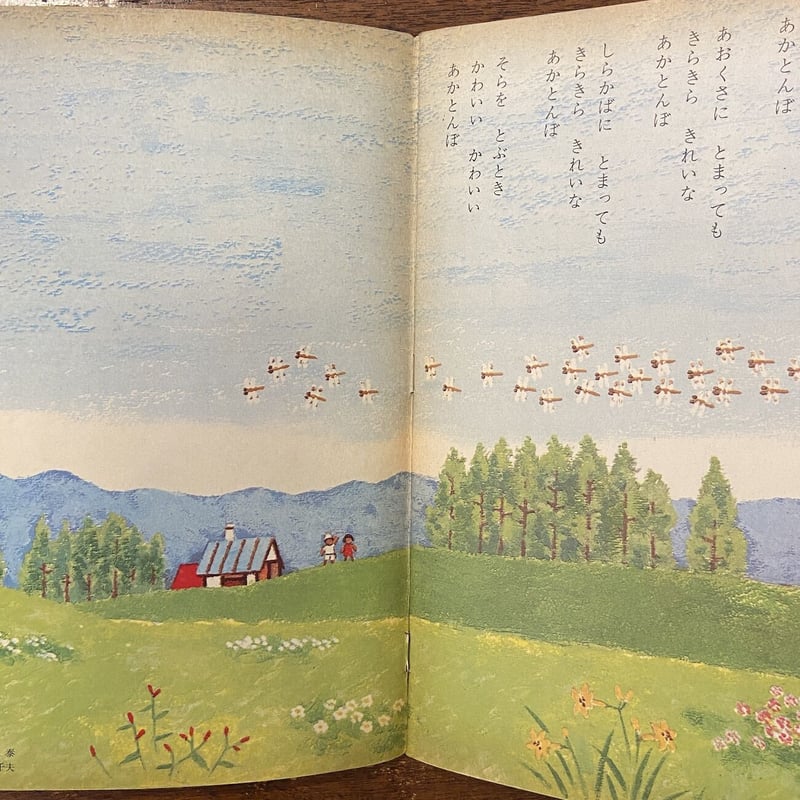 あかとんぼ
あおくさに　とまっても
きらきら　きれいな
あかとんぼ
しらかばに　とまっても
きらきら　きれいな
あかとんぼ
そらを　とぶとき
かわいい　かわいい
あかとんぼ
泰
千夫